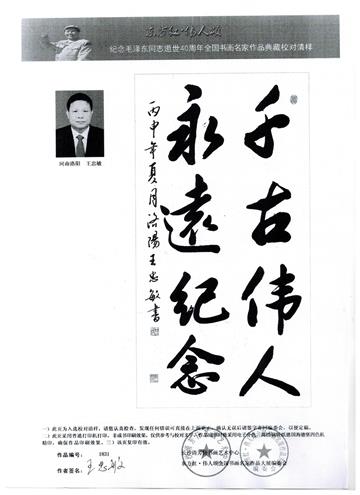 东方红·伟人颂
纪念毛泽东同志逝世40周年全国书画名家作品典藏校对清样
河南洛阳 王忠敏
千古伟人
永远纪念
丙申年夏月洛阳王忠敏书
一)此页为入典校对清样，请您认真检查，发现任何错误可直接在上面更正，确认无误后请签字寄回编委会，以便定稿。
二)此页采用普通打印机打印，非成书印刷效果，仅供参考与校对文字
三)该页复印有效。
作品编号： 1821
作者签名： 王忠敏
长沙
书画艺术中心
东方红·伟人颂全国书画名家作品大展组委会